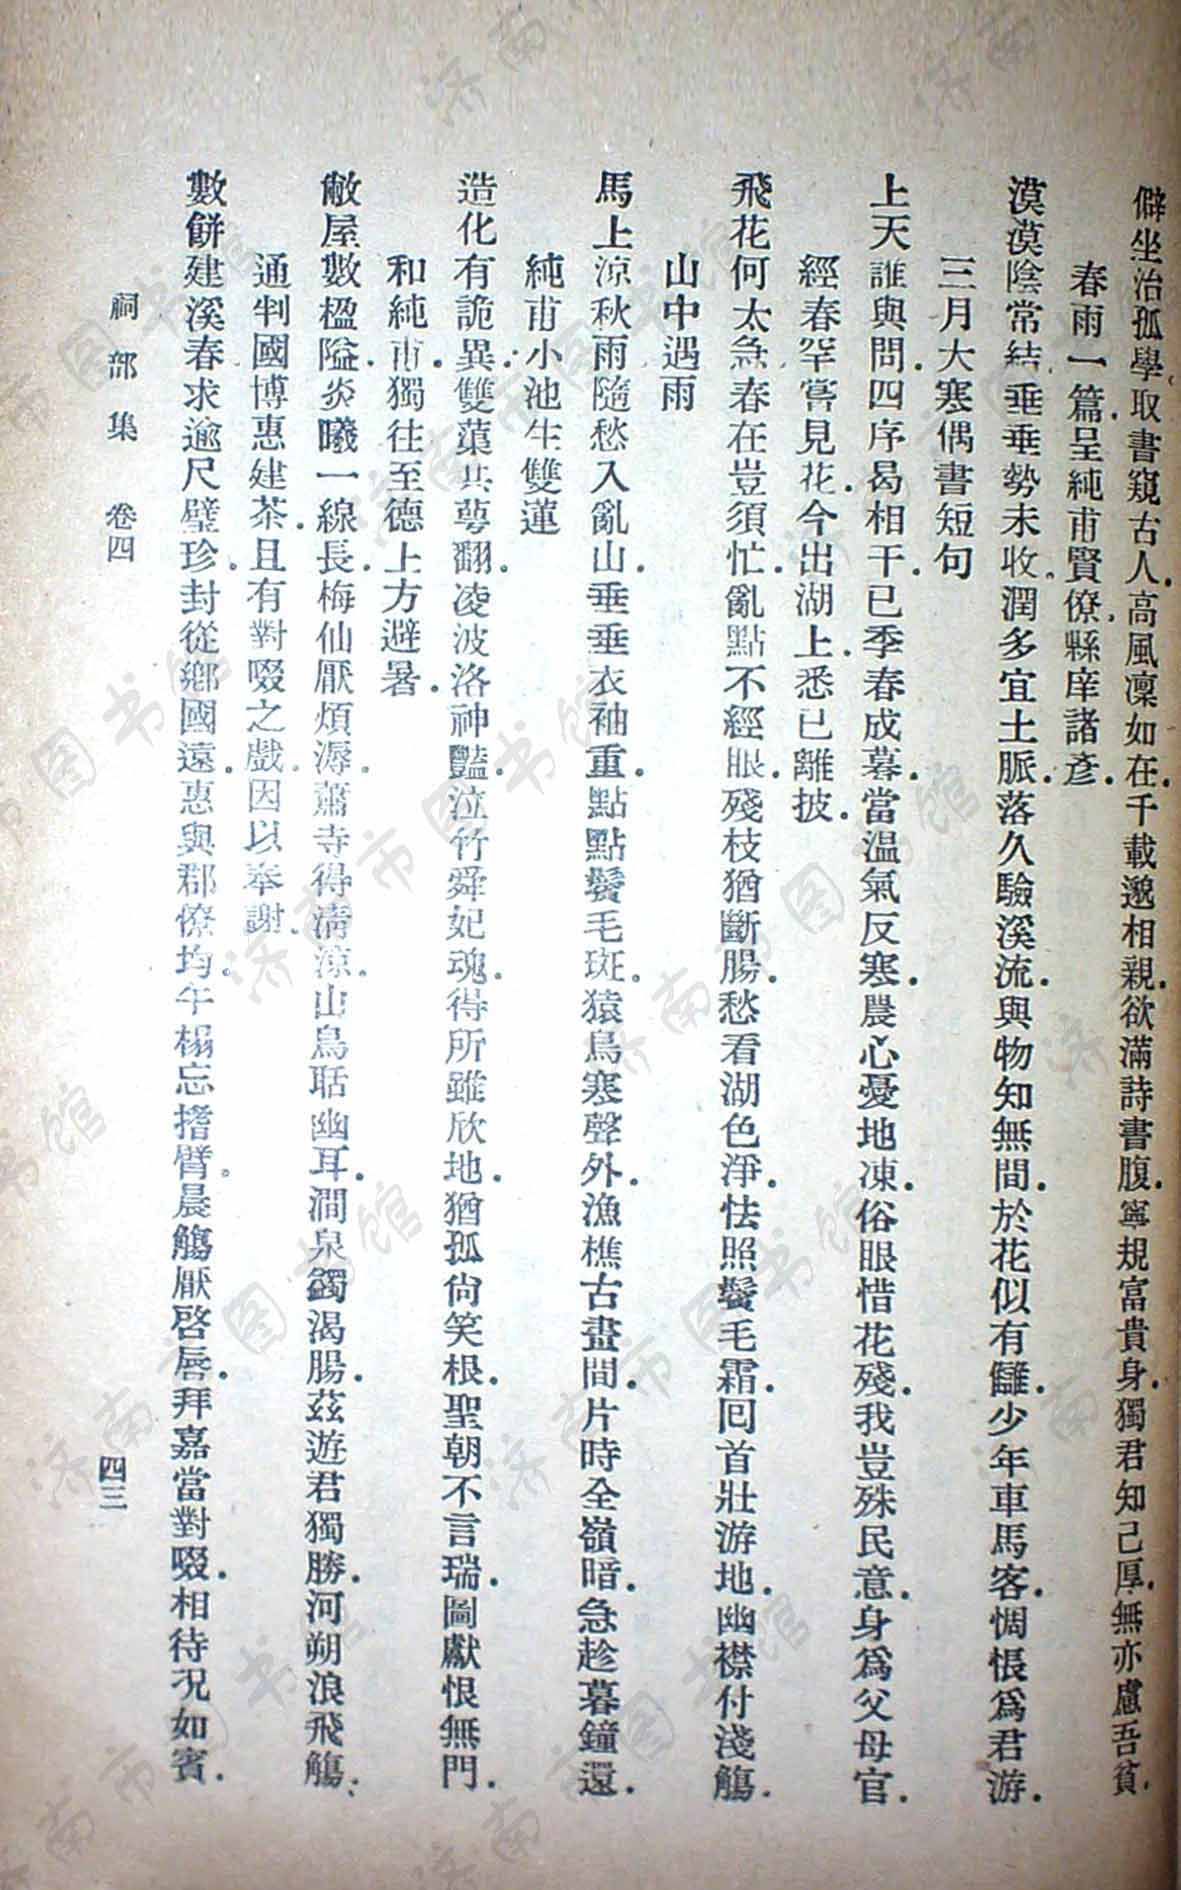 僻坐治孤學取書窺古人高風凜如在千載邈相親欲滿詩書腹寧規富貴身獨君知己厚無亦慮吾貧
春雨一篇呈純甫賢僚縣庠諸彥
漠漠陰常結垂垂勢未收潤多宜土脈落久驗溪流與物知無間於花似有讎少年車馬客惆悵爲君游
三月大寒偶書短句
上天誰與問四序曷相干已季春成暮當溫氣反寒農心憂地凍俗眼惜花殘我豈殊民意身爲父母官
經春罕嘗見花今出湖上悉已離披
飛花何太急春在豈須忙亂點不經眼殘枝猶斷腸愁看湖色淨怯照鬢毛霜囘首壯游地幽襟付淺觴
山中遇雨
馬上涼秋雨隨愁入亂山垂垂衣袖重點點鬢毛斑猿鳥寒聲外漁樵古畫間片時全嶺暗急趁暮鐘還
純甫小池生雙蓮
造化有詭異雙葉共萼翻凌波洛神豔泣竹舜妃魂得所雖欣地猶孤尙笑根聖朝不言瑞圖獻恨無門
和純甫獨往至德上方避暑
敝屋數楹隘炎曦一線長梅仙厭煩溽蕭寺得清涼山鳥聒幽耳澗泉蠲渴腸茲遊君獨勝河朔浪飛觴
通判國博惠建茶且有對啜之戲因以奉謝
數餅建溪春求逾尺璧珍封從鄉國遠惠與郡僚均午榻忘搘臂晨觴厭啓脣拜嘉當對啜相待況如賓
祠部集 卷四 四三
济南市图书馆